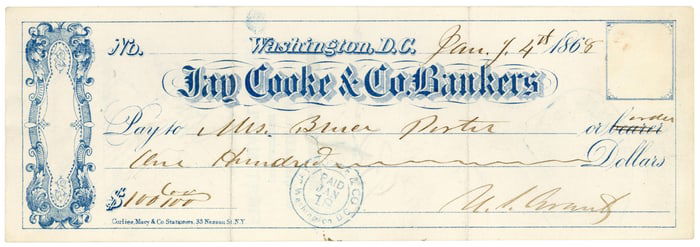 No. Washington, D.C. Jan. 4th 1868
Jay Cooke & Co. Bankers
Pay to Mrs. Porter or bearer order
One Hundred Dollars
$100 00/100
PAID
JAN
Washington D.C.
U. S. Grant
Corlies, Macy & Co. Stationers, 33 Nassau St. N.Y.